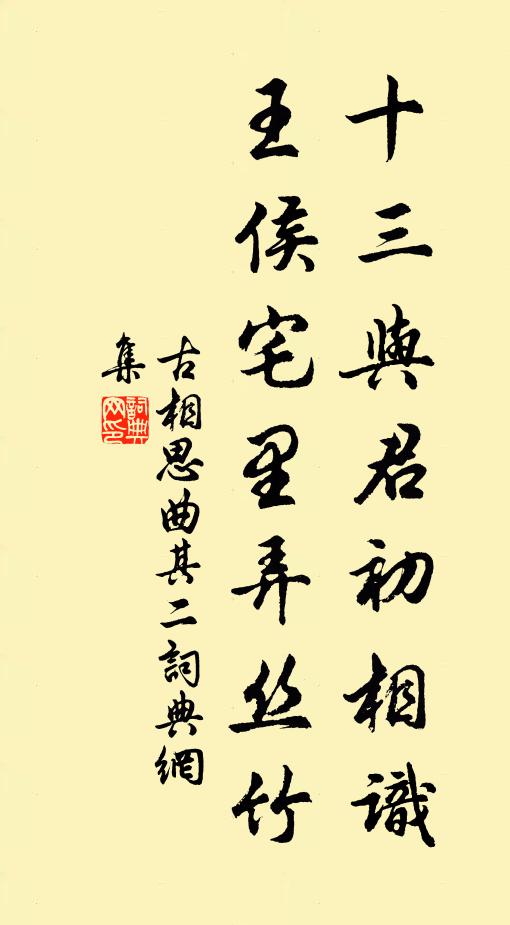 十三與君初相識
王侯宅里弄丝竹
古相思曲其二詞典網
集
詞典
网印